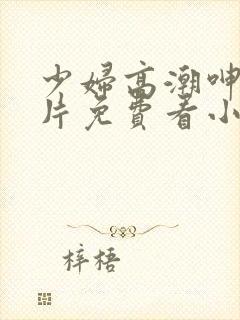 少婦高潮呻
片免費看小
梓梧